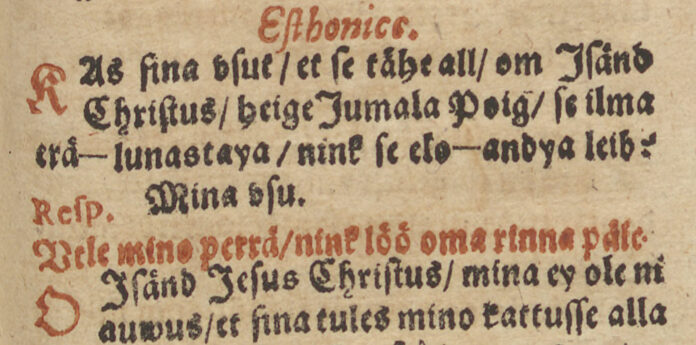 Esthonice.
KAs sina vsut / et se tähe all / om Jsänd
Christus / heige Jumala Poig / se ilma
erä—lunastaya / nink se elo—andya leib?
Resp. Mina vsu.
Vele mino perrä / nink löö oma rinna päle.
O Jsänd Jesus Christus / mina ey ole ni
auwus / et sina tules mino kattusse alla